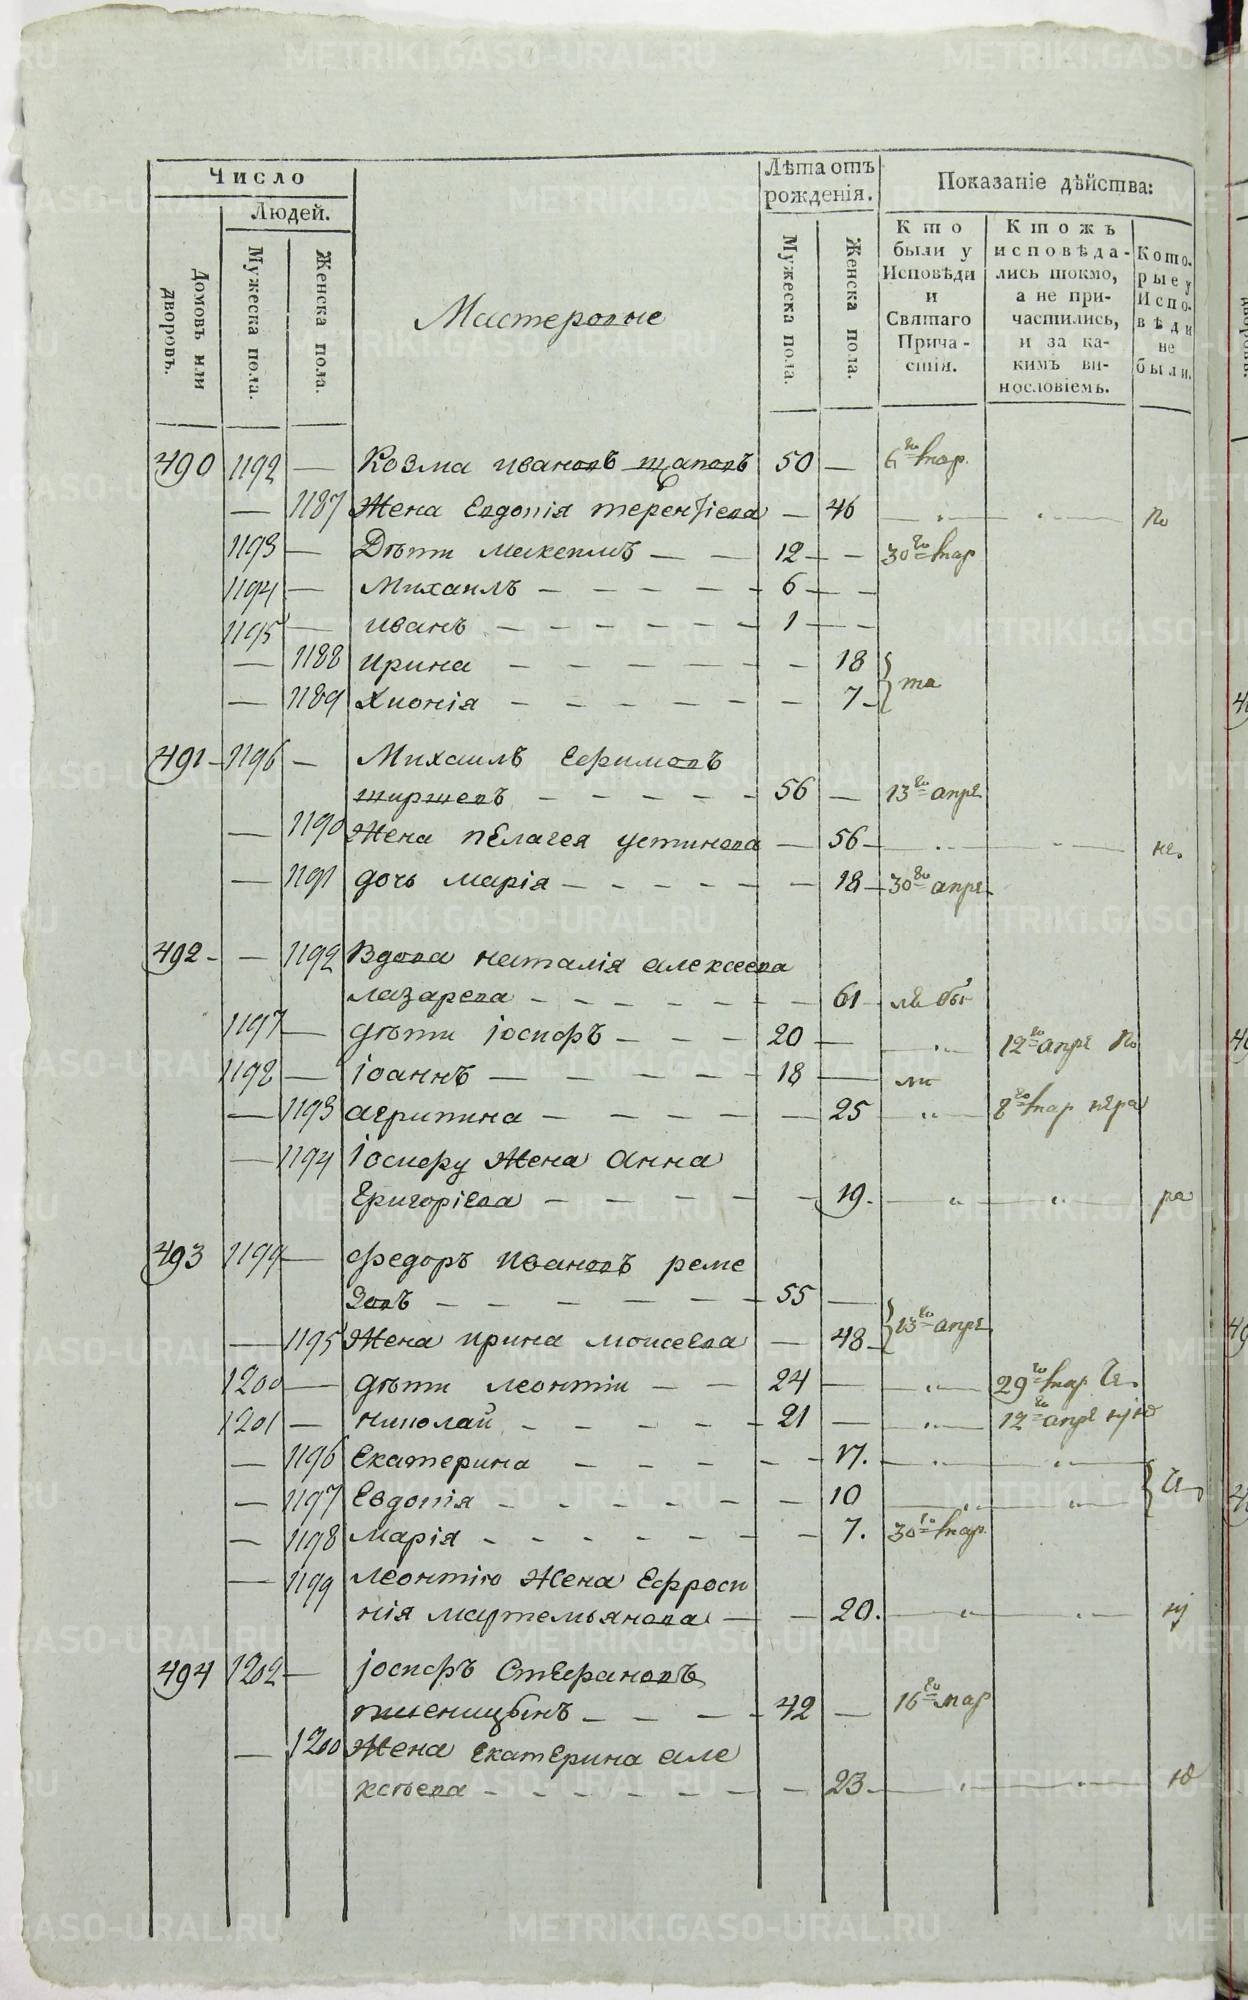 Число
Людей.
Домовъ или дворовъ.
Мужеска пола.
Женска пола.
Мастеровые
Лѣта отъ рожденія.
Мужеска пола.
Женска пола.
Показаніе дѣйства:
Кто были у Исповѣди и Святаго Причастія.
Ктожъ исповѣдались токмо, а не причастились, и за какимъ винословіемъ.
Которые у Исповѣди не были.
490 1192 — Козма ивановъ щаповъ 50 — 6го мар.
— 1187 Жена Евдокія терентіева — 46
1193 — Дѣти Макеимъ — — 12 — — 30го мар
1194 — Михаилъ — — — — — 6 — —
1195 — иванъ — — — — — — 1 — —
— 1188 ирина — — — — — — 18
— 1189 Хионія — — — — — — 7 — та
491 — 1196 — Михаилъ Ефимовъ
ширшевъ — — — — — 56 — 13го апре
— 1190 Жена пелагея устинова — 56 —
— 1191 дочь марія — — — — — — 18 — 30го апре
492 — — 1192 Вдова наталія алексеева
лазарева — — — — — — 61
1197 — дѣти іосифъ — — — 20 — 12го апре
1198 — іоаннъ — — — — — 18 —
— 1193 агрипина — — — — — 25 8го мар
— 1194 іосифу жена Анна
григоріева — — — — — 19.
493 1199 — федоръ ивановъ реме
зовъ — — — — — — 55 — 13го апре
— 1195 Жена ирина моисеева — 48 —
1200 — дѣти леонтіи — — 24 — 29го мар
1201 — николай — — — — — 21 — 12го апре
— 1196 Екатерина — — — — — 17.
— 1197 Евдокія — — — — — — 10
— 1198 марія — — — — — — 7. 30го мар.
— 1199 леонтію жена Ефроси
нія мартемьянова — — 20.
494 1202 — іосифъ Стефановъ
пшеницынъ — — — — 42 — 16го мар
— 1200 Жена екатерина але
ксѣева — — — — — — 23
METRIKI.GASO-URAL.RU